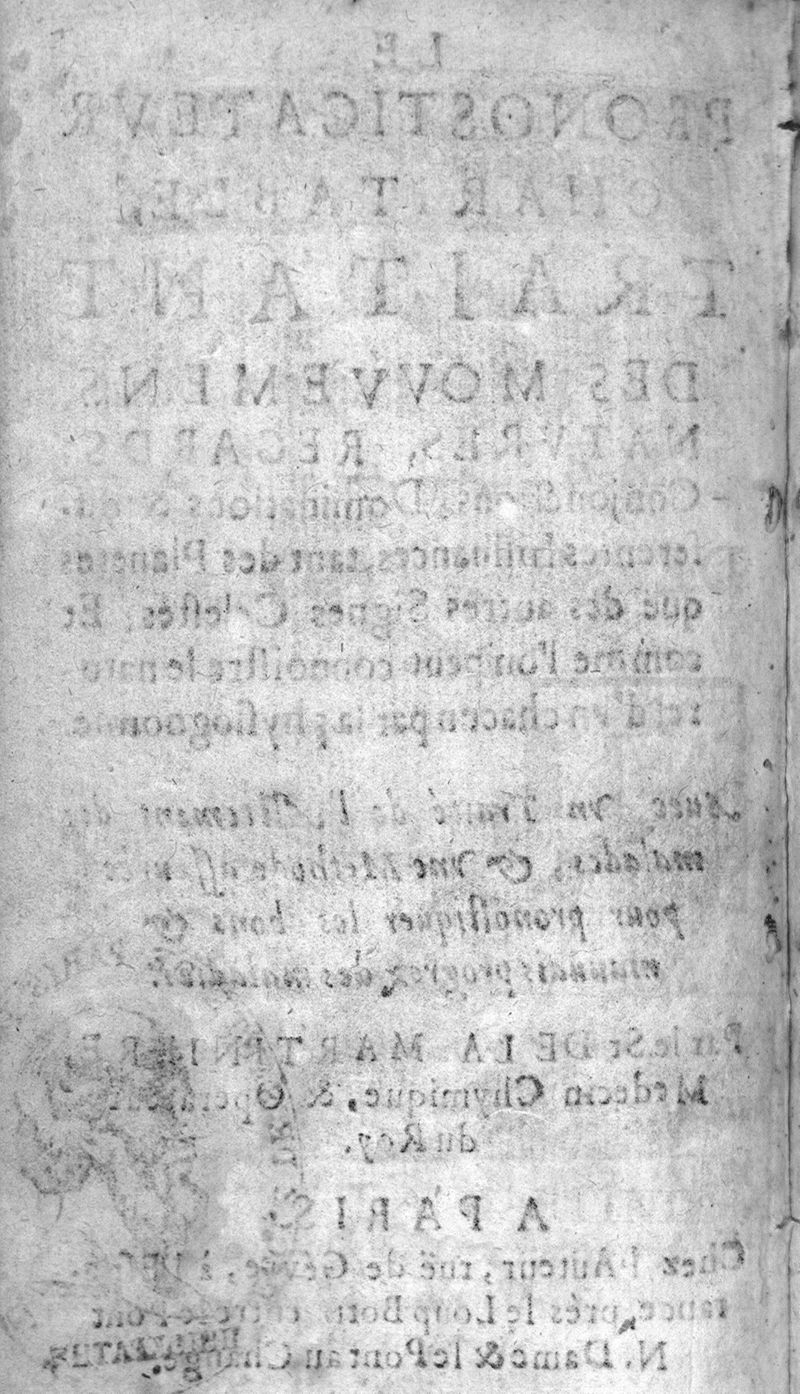 LE
PRONOSTICATEVR
CHARITABLE,
TRAITTANT
DES MOVVEMENS
NATVRES, REGARDS,
Conjonctions, Dominations &
ferentes Influances, tant des Planetes
que des autres Signes Celestes, Et
comme l'on peut connoistre le natu
rel d'vn chacun par la physiognomie.
Auec vn Traité de l' des
malades, & vne Methode
pour pronostiquer les bons &
mauuais progrez des maladies.
Par le Sr DE LA MARTINIERE
Medecin Chymique, & Operateur
du Roy.
A PARIS
Chez l'Auteur, ruë de Gévre, à
rance, prés le Loup Botté entre le Pont
N. Dame & le Pont au Change.
PARIS
DE